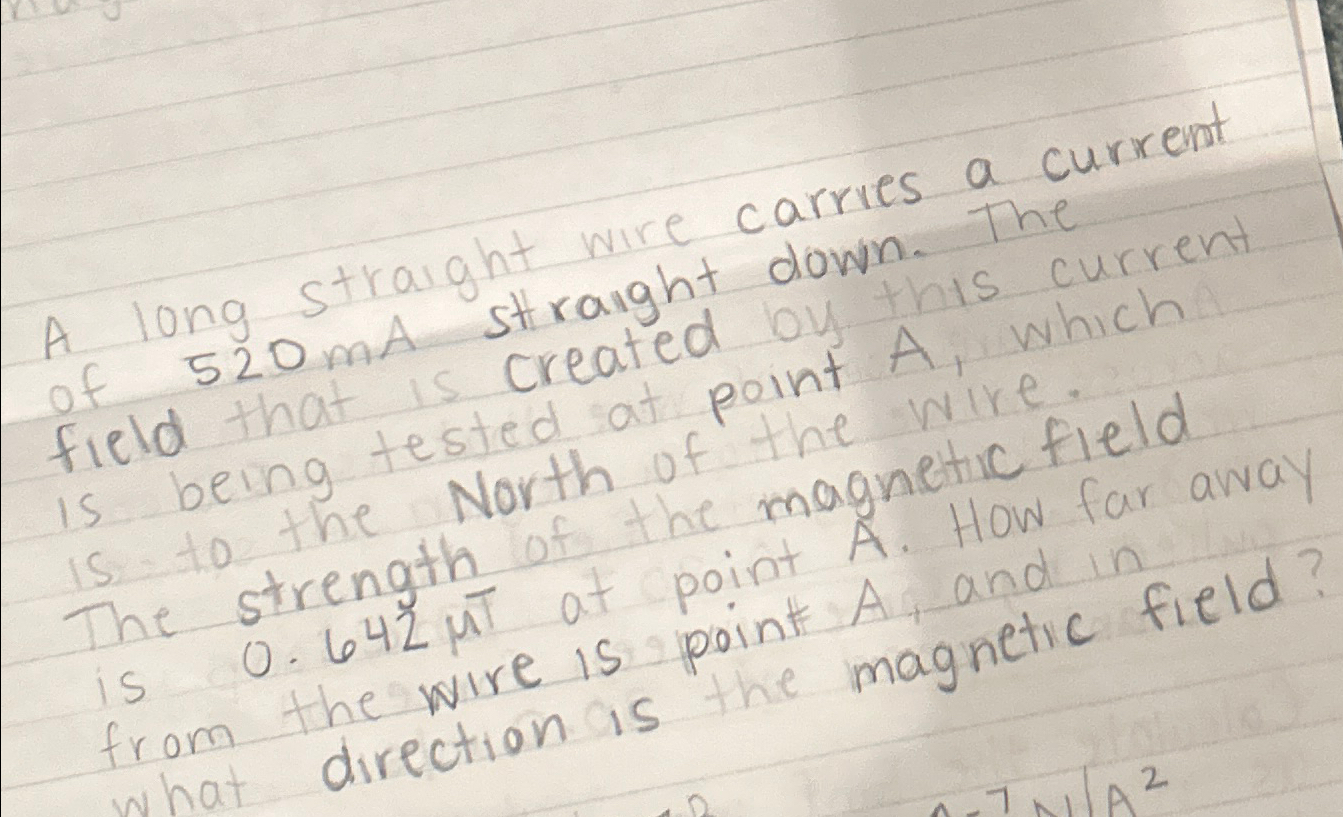 A long straight wire carries a current
of 520mA straight down. The
field that is created by this current
is being tested at point A, which
is to the North of the wire.
The strength of the magnetic field
is 0.642 μT at point A. How far away
from the wire is point A, and in
what direction is the magnetic field?
-7 N/A²